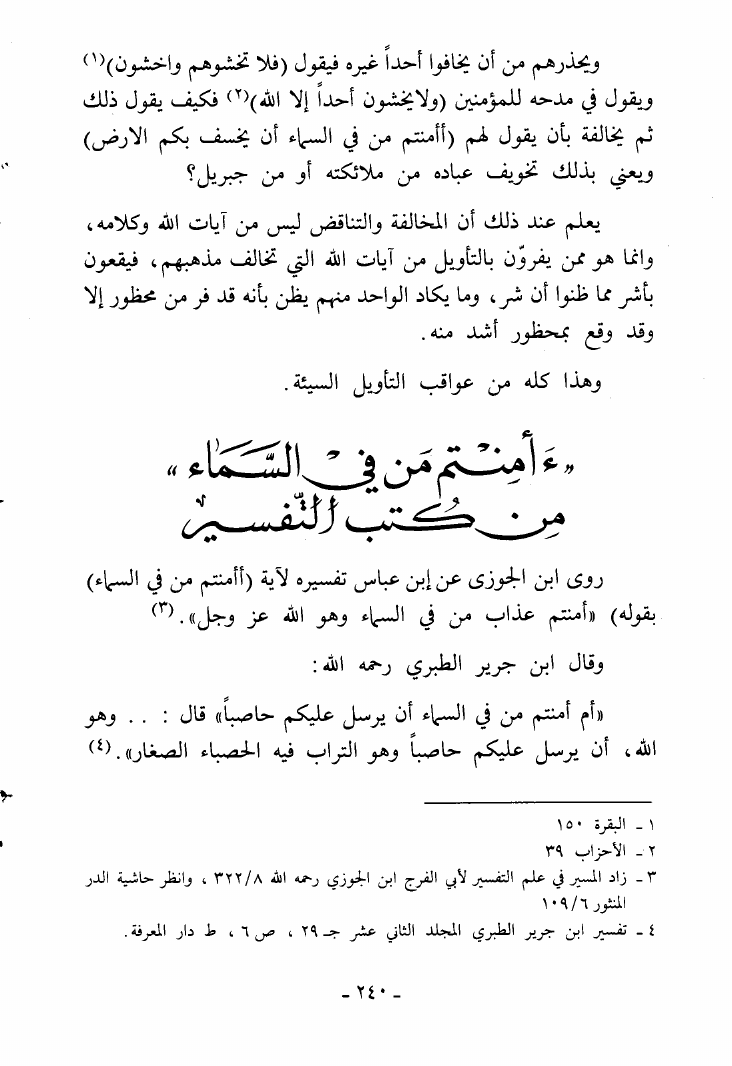 ويحذرهم من أن يخافوا أحداً غيره فيقول (فلا تخشوهم واخشون)(١)
ويقول في مدحه للمؤمنين (ولايخشون أحداً إلا الله)(٢) فكيف يقول ذلك
ثم يخالفة بأن يقول لهم (أأمنتم من في السماء أن يخسف بكم الارض)
ويعني بذلك تخويف عباده من ملائكته أو من جبريل؟
يعلم عند ذلك أن المخالفة والتناقض ليس من آيات الله وكلامه،
وانما هو ممن يفروّن بالتأويل من آيات الله التي تخالف مذهبهم، فيقعون
بأشر مما ظنوا أن شر، وما يكاد الواحد منهم يظن بأنه قد فر من محظور إلا
وقد وقع بمحظور أشد منه.
وهذا كله من عواقب التأويل السيئة.
«ءَأَمِنْتم مَن فيْ السَّمَاء»
مِن كُتب التَّفسير
روى ابن الجوزى عن إبن عباس تفسيره لآية (أأمنتم من في السماء)
بقوله) «أمنتم عذاب من في السماء وهو الله عز وجل».(٣)
وقال ابن جرير الطبري رحمه الله:
«أم أمنتم من في السماء أن يرسل عليكم حاصباً» قال : . . وهو
الله، أن يرسل عليكم حاصباً وهو التراب فيه الحصباء الصغار».(٤)
١ ـ البقرة ١٥٠
٢ ـ الأحزاب ٣٩
٣ ـ زاد المسير في علم التفسير لأبي الفرج ابن الجوزي رحمه الله ٣٢٢/٨ ، وانظر حاشية الدر
المنثور ١٠٩/٦
٤ ـ تفسير ابن جرير الطبري المجلد الثاني عشر جـ ٢٩ ، ص ٦ ، ط دار المعرفة.
ـ ٢٤٠ ـ